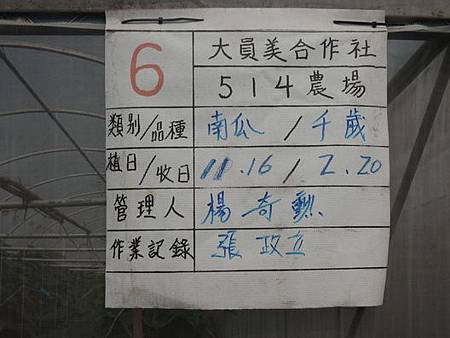 6
大員美合作社
514農場
類別/品種 南瓜 / 千歲
植日/收日 11.16 / 2.20
管理人 楊奇勲
作業記錄 張政立